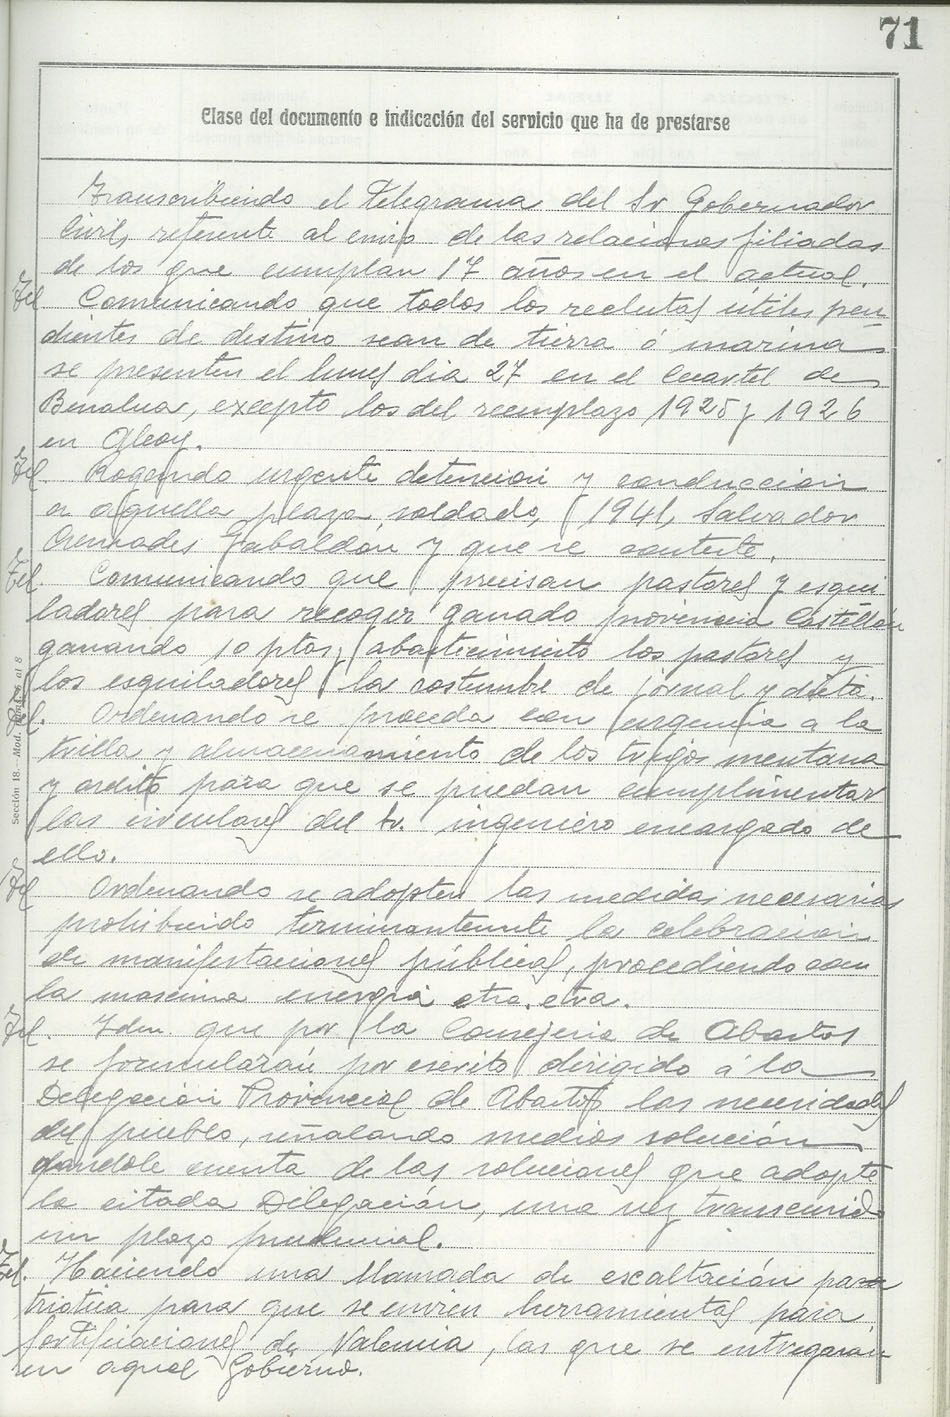 71
Clase del documento e indicación del servicio que ha de prestarse
Transcribiendo el telegrama del Sr Gobernador
Civil, referente al envio de las relaciones filiadas
de los que cumplan 17 años en el actual.
Tel Comunicando que todos los reclutas útiles pen
dientes de destino sean de tierra ó marina
se presenten el lunes dia 27 en el Cuartel de
Benalua, excepto los del reemplazo 1925 y 1926
en Alcoy.
Tel. Rogando urgente detencion y conduccion
a aquella plaza, soldado, 1941, Salvador
Gabaldon y que se conteste.
Tel. Comunicando que precisan pastores y esqui
ladores para recoger ganado provincia Castellón
ganando 10 ptas, abastecimiento los pastores y
los esquiladores la costumbre de jornal y dieta.
Tel. Ordenando se proceda con urgencia a la
trilla y almacenamiento de los trigos mentana
y ardito para que se puedan cumplimentar
las circulares del Sr. ingeniero encargado de
ello.
Tel Ordenando se adopten las medidas necesarias
prohibiendo terminantemente la celebracion
de manifestaciones públicas, procediendo con
la maxima energia etra. etra.
Tel. Idem. que por la Consejeria de Abastos
se formularán por escrito dirigido á la
Delegación Provincial de Abastos las necesidades
del pueblo, señalando medios solución
dandole cuenta de las soluciones que adopte
la citada Delegación, una vez transcurrido
un plazo prudencial.
Tel. Haciendo una llamada de exaltación pa
triotica para que se envien herramientas para
fortificaciones de Valencia, las que se entregaran
en aquel Gobierno.
Sección 18.—Mod.